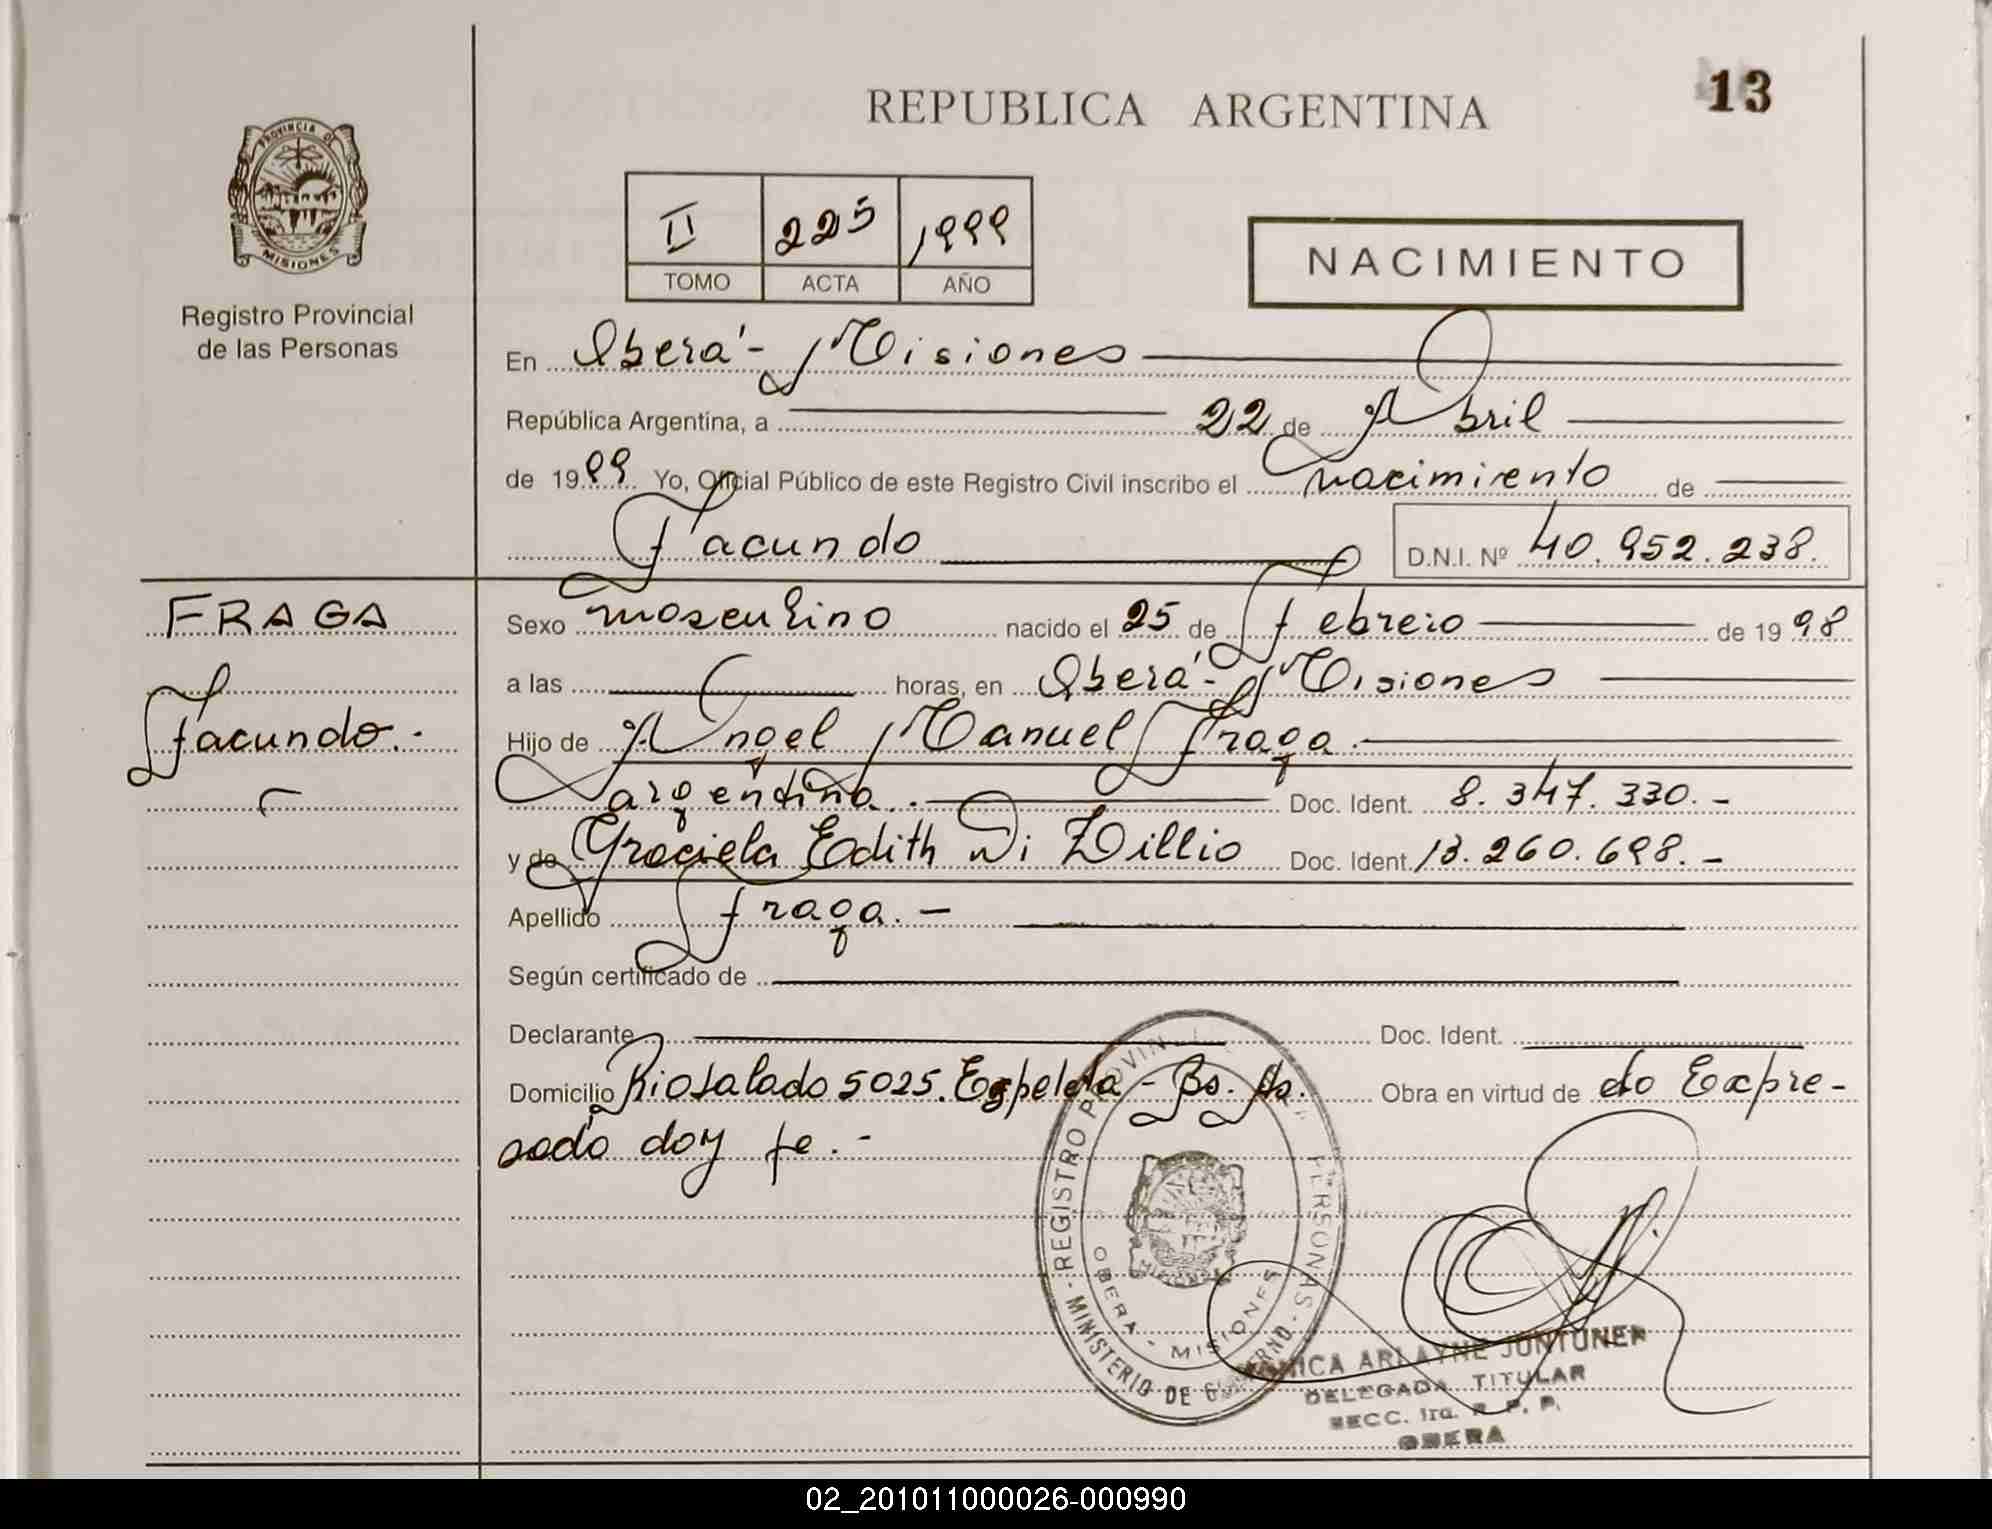 REPUBLICA ARGENTINA
13
PROVINCIA DE
MISIONES
Registro Provincial
de las Personas
II 225 1999
TOMO ACTA AÑO
NACIMIENTO
En Oberá - Misiones
República Argentina, a 22 de Abril
de 1999 Yo, Oficial Público de este Registro Civil inscribo el nacimiento de
Facundo D.N.I. Nº 40.952.238.
FRAGA
Facundo.-
Sexo masculino nacido el 25 de Febrero de 1998
a las horas, en Oberá - Misiones
Hijo de Angel Manuel Fraga.
argentina. Doc. Ident. 8.347.330.-
y de Graciela Edith Di Zillio Doc. Ident. 13.260.698.-
Apellido Fraga.-
Según certificado de
Declarante Doc. Ident.
Domicilio Rio Salado 5025. Ezpeleta - Bs. As. Obra en virtud de do Expre-
sado doy fe.-
REGISTRO PROVINCI PERSONAS
MINISTERIO DE GOBIERNO
OBERA - MISIONES
MONICA ARLAYNE JUNTUNEN
DELEGADA TITULAR
SECC. 1ra. R. P. P.
OBERA
02_201011000026-000990